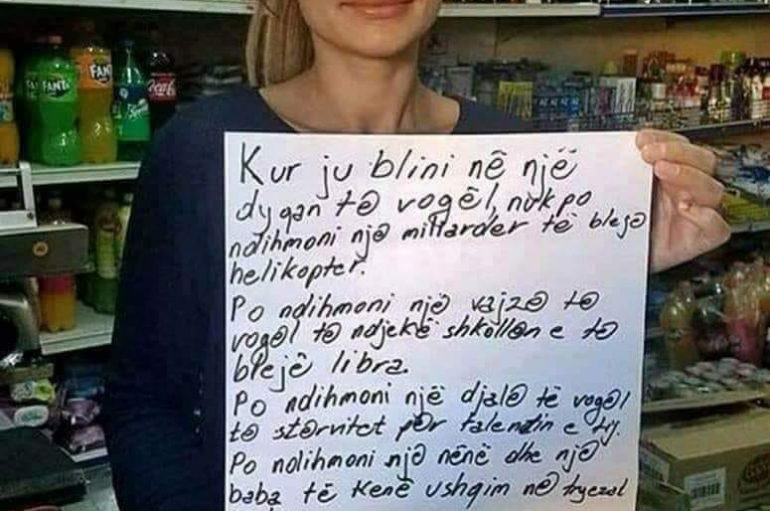 Kur ju blini në një
dyqan të vogël, nuk po
ndihmoni një miliarder të blejë
helikopter.
Po ndihmoni një vajzë të
vogël të ndjekë shkollën e të
blejë libra.
Po ndihmoni një djalë të vogël
të stërvitet për talentin e tij.
Po ndihmoni një nënë dhe një
baba të kenë ushqim në tryezë!
FANTA
FANTA
Coca-Cola